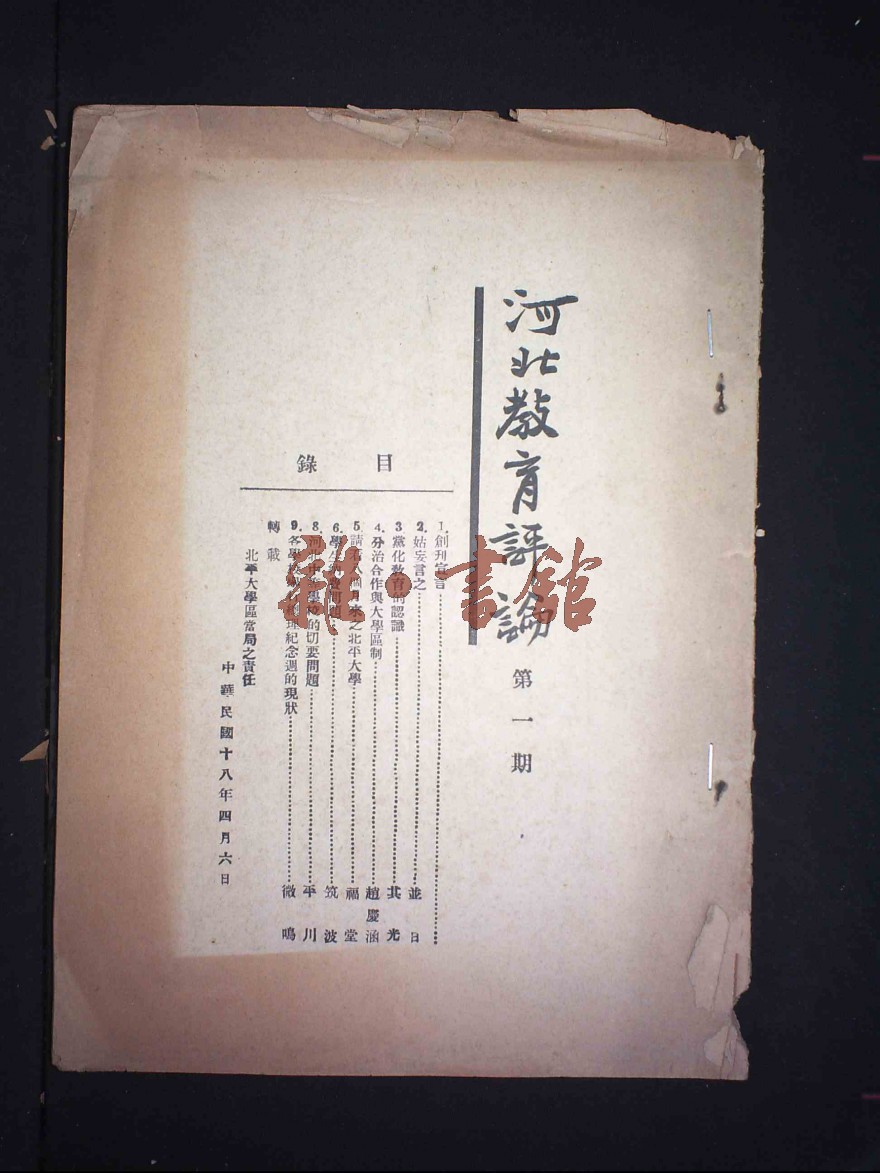 河北教育評論
第一期
目錄
1.創刊宣言
2.姑妄言之 並日
3.黨化教育的認識 其光
4.分治合作與大學區制 趙慶涵
5.請看八個月來之北平大學 福堂
6.學生 問題 筑波
8.河北中等學校的切要問題 平川
9.各學校 總理紀念週的現狀 微鳴
轉載
北平大學區當局之責任
中華民國十八年四月六日
雜·書館